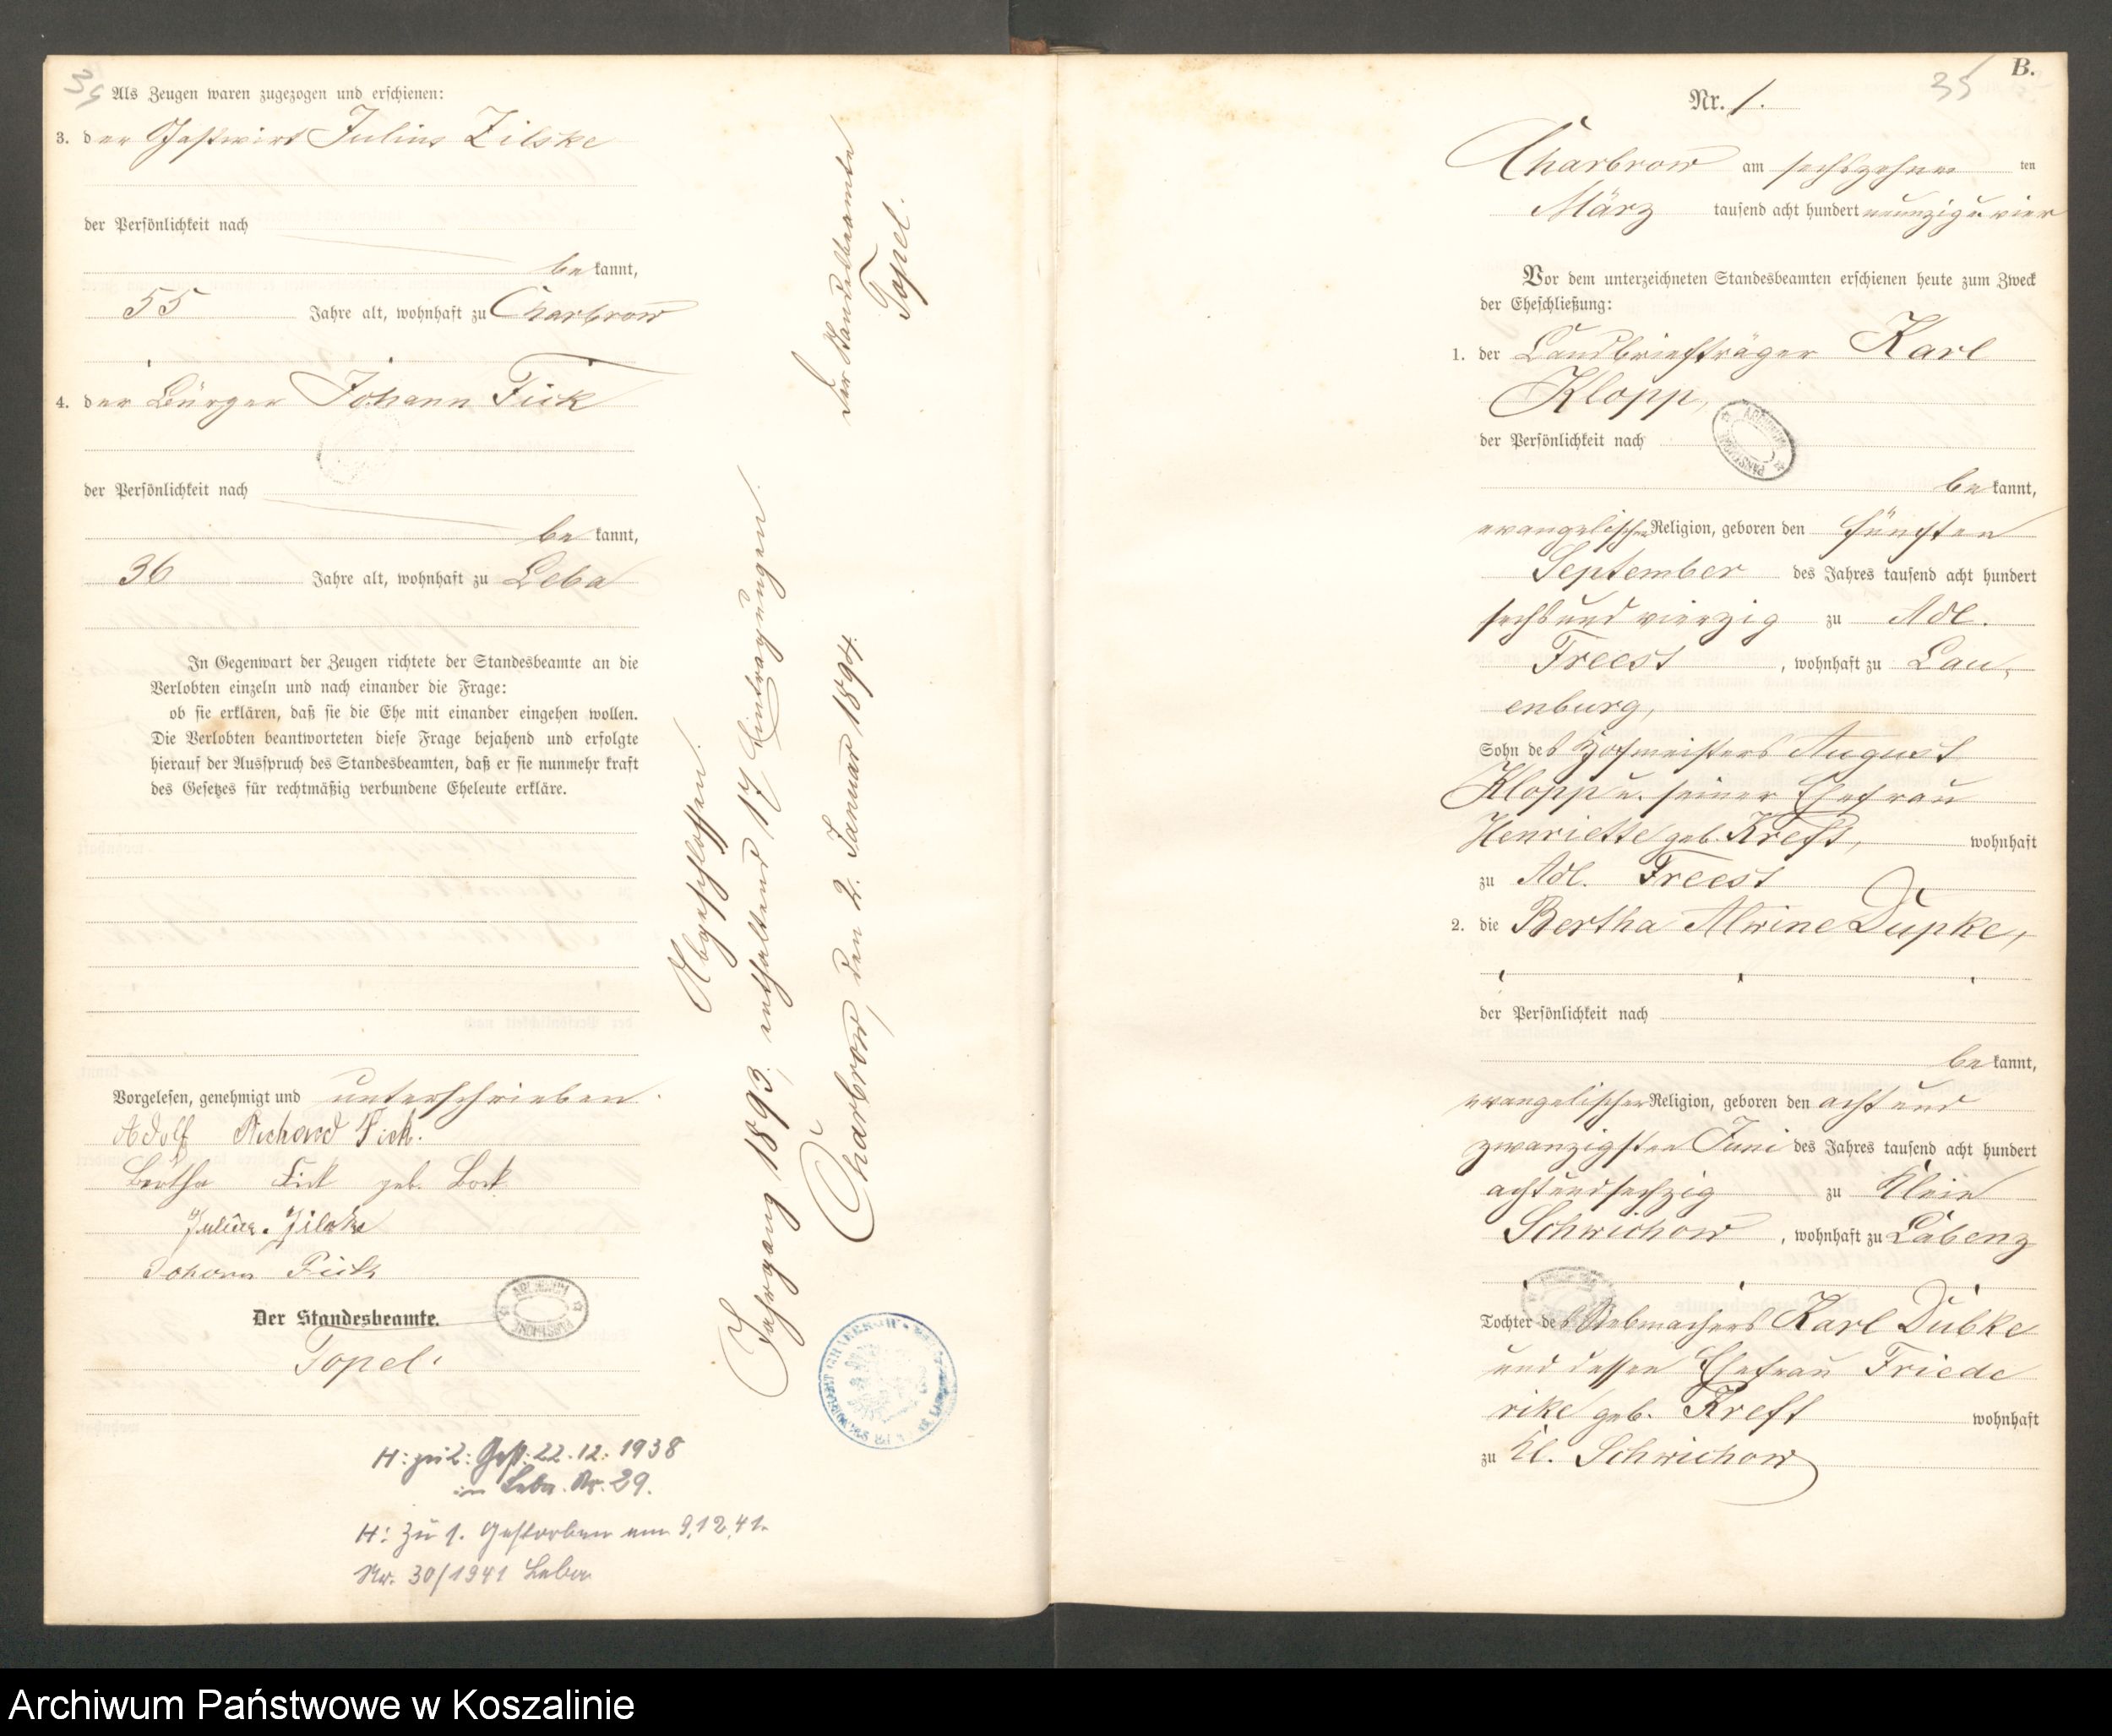 34
Als Zeugen waren zugezogen und erschienen:
3. der Gastwirt Julius Zilske
der Persönlichkeit nach
bekannt,
55 Jahre alt, wohnhaft zu Charbrow
4. der Bürger Johann Fick
der Persönlichkeit nach
bekannt,
36 Jahre alt, wohnhaft zu Leba
In Gegenwart der Zeugen richtete der Standesbeamte an die
Verlobten einzeln und nach einander die Frage:
ob sie erklären, daß sie die Ehe mit einander eingehen wollen.
Die Verlobten beantworteten diese Frage bejahend und erfolgte
hierauf der Ausspruch des Standesbeamten, daß er sie nunmehr kraft
des Gesetzes für rechtmäßig verbundene Eheleute erkläre.
Vorgelesen, genehmigt und unterschrieben.
Adolf Richard Fick.
Bertha Fick geb. Bock
Julius Zilske
Johann Fick
Der Standesbeamte.
Topel.
H: zu 2: Gest. 22.12.1938
in Leba. Nr. 29.
H: Zu 1. Gestorben am 9.12.41.
Nr. 30/1941 Leba
Abgeschlossen.
Jahrgang 1893, enthaltend 17 Eintragungen.
Charbrow, den 2. Januar 1894.
Der Standesbeamte
Topel.
B.
35
Nr. 1.
Charbrow am sechszehnten
März tausend acht hundert neunzig u. vier
Vor dem unterzeichneten Standesbeamten erschienen heute zum Zweck
der Eheschließung:
1. der Landbriefträger Karl
Klopp,
der Persönlichkeit nach
bekannt,
evangelischer Religion, geboren den fünften
September des Jahres tausend acht hundert
sechsundvierzig zu Adl.
Freest, wohnhaft zu Lau-
enburg,
Sohn des Hofmeisters August
Klopp u. seiner Ehefrau
Henriette geb. Kreft, wohnhaft
zu Adl. Freest
2. die Bertha Alwine Dupke,
der Persönlichkeit nach
bekannt,
evangelischer Religion, geboren den acht und
zwanzigsten Juni des Jahres tausend acht hundert
achtundsechzig zu Klein
Schwichow, wohnhaft zu Labenz
Tochter des Radmachers Karl Dubke
und dessen Ehefrau Friede
rike geb. Kreft wohnhaft
zu Kl. Schwichow
Archiwum Państwowe w Koszalinie